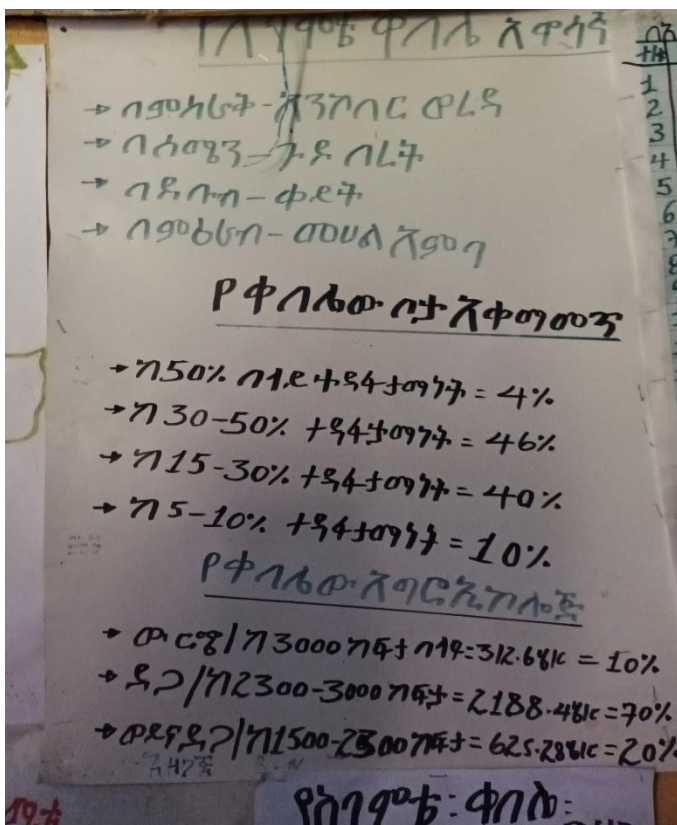 ቀበሌ አዋሳኝ
→ በምስራቅ - አንኮበር ወረዳ
→ በሰሜን - ጉዶ በረት
→ በደቡብ - ቀይት
→ በምዕራብ - መሀል አምባ
የቀበሌው ቦታ አቀማመጥ
→ ከ50% በላይ ተዳፋታማነት = 4%
→ ከ30-50% ተዳፋታማነት = 46%
→ ከ15-30% ተዳፋታማነት = 40%
→ ከ5-10% ተዳፋታማነት = 10%
የቀበሌው አግሮኢኮሎጅ
→ ውርጭ/ከ3000 ከፍታ በላይ=312.6ሄክ = 10%
→ ደጋ/ከ2300-3000 ከፍታ=2188.4ሄክ=70%
→ ወይናደጋ/ከ1500-2300 ከፍታ=625.2ሄክ=20%
ቀበሌ:
ተቁ
1
2
3
4
5
6
7
8